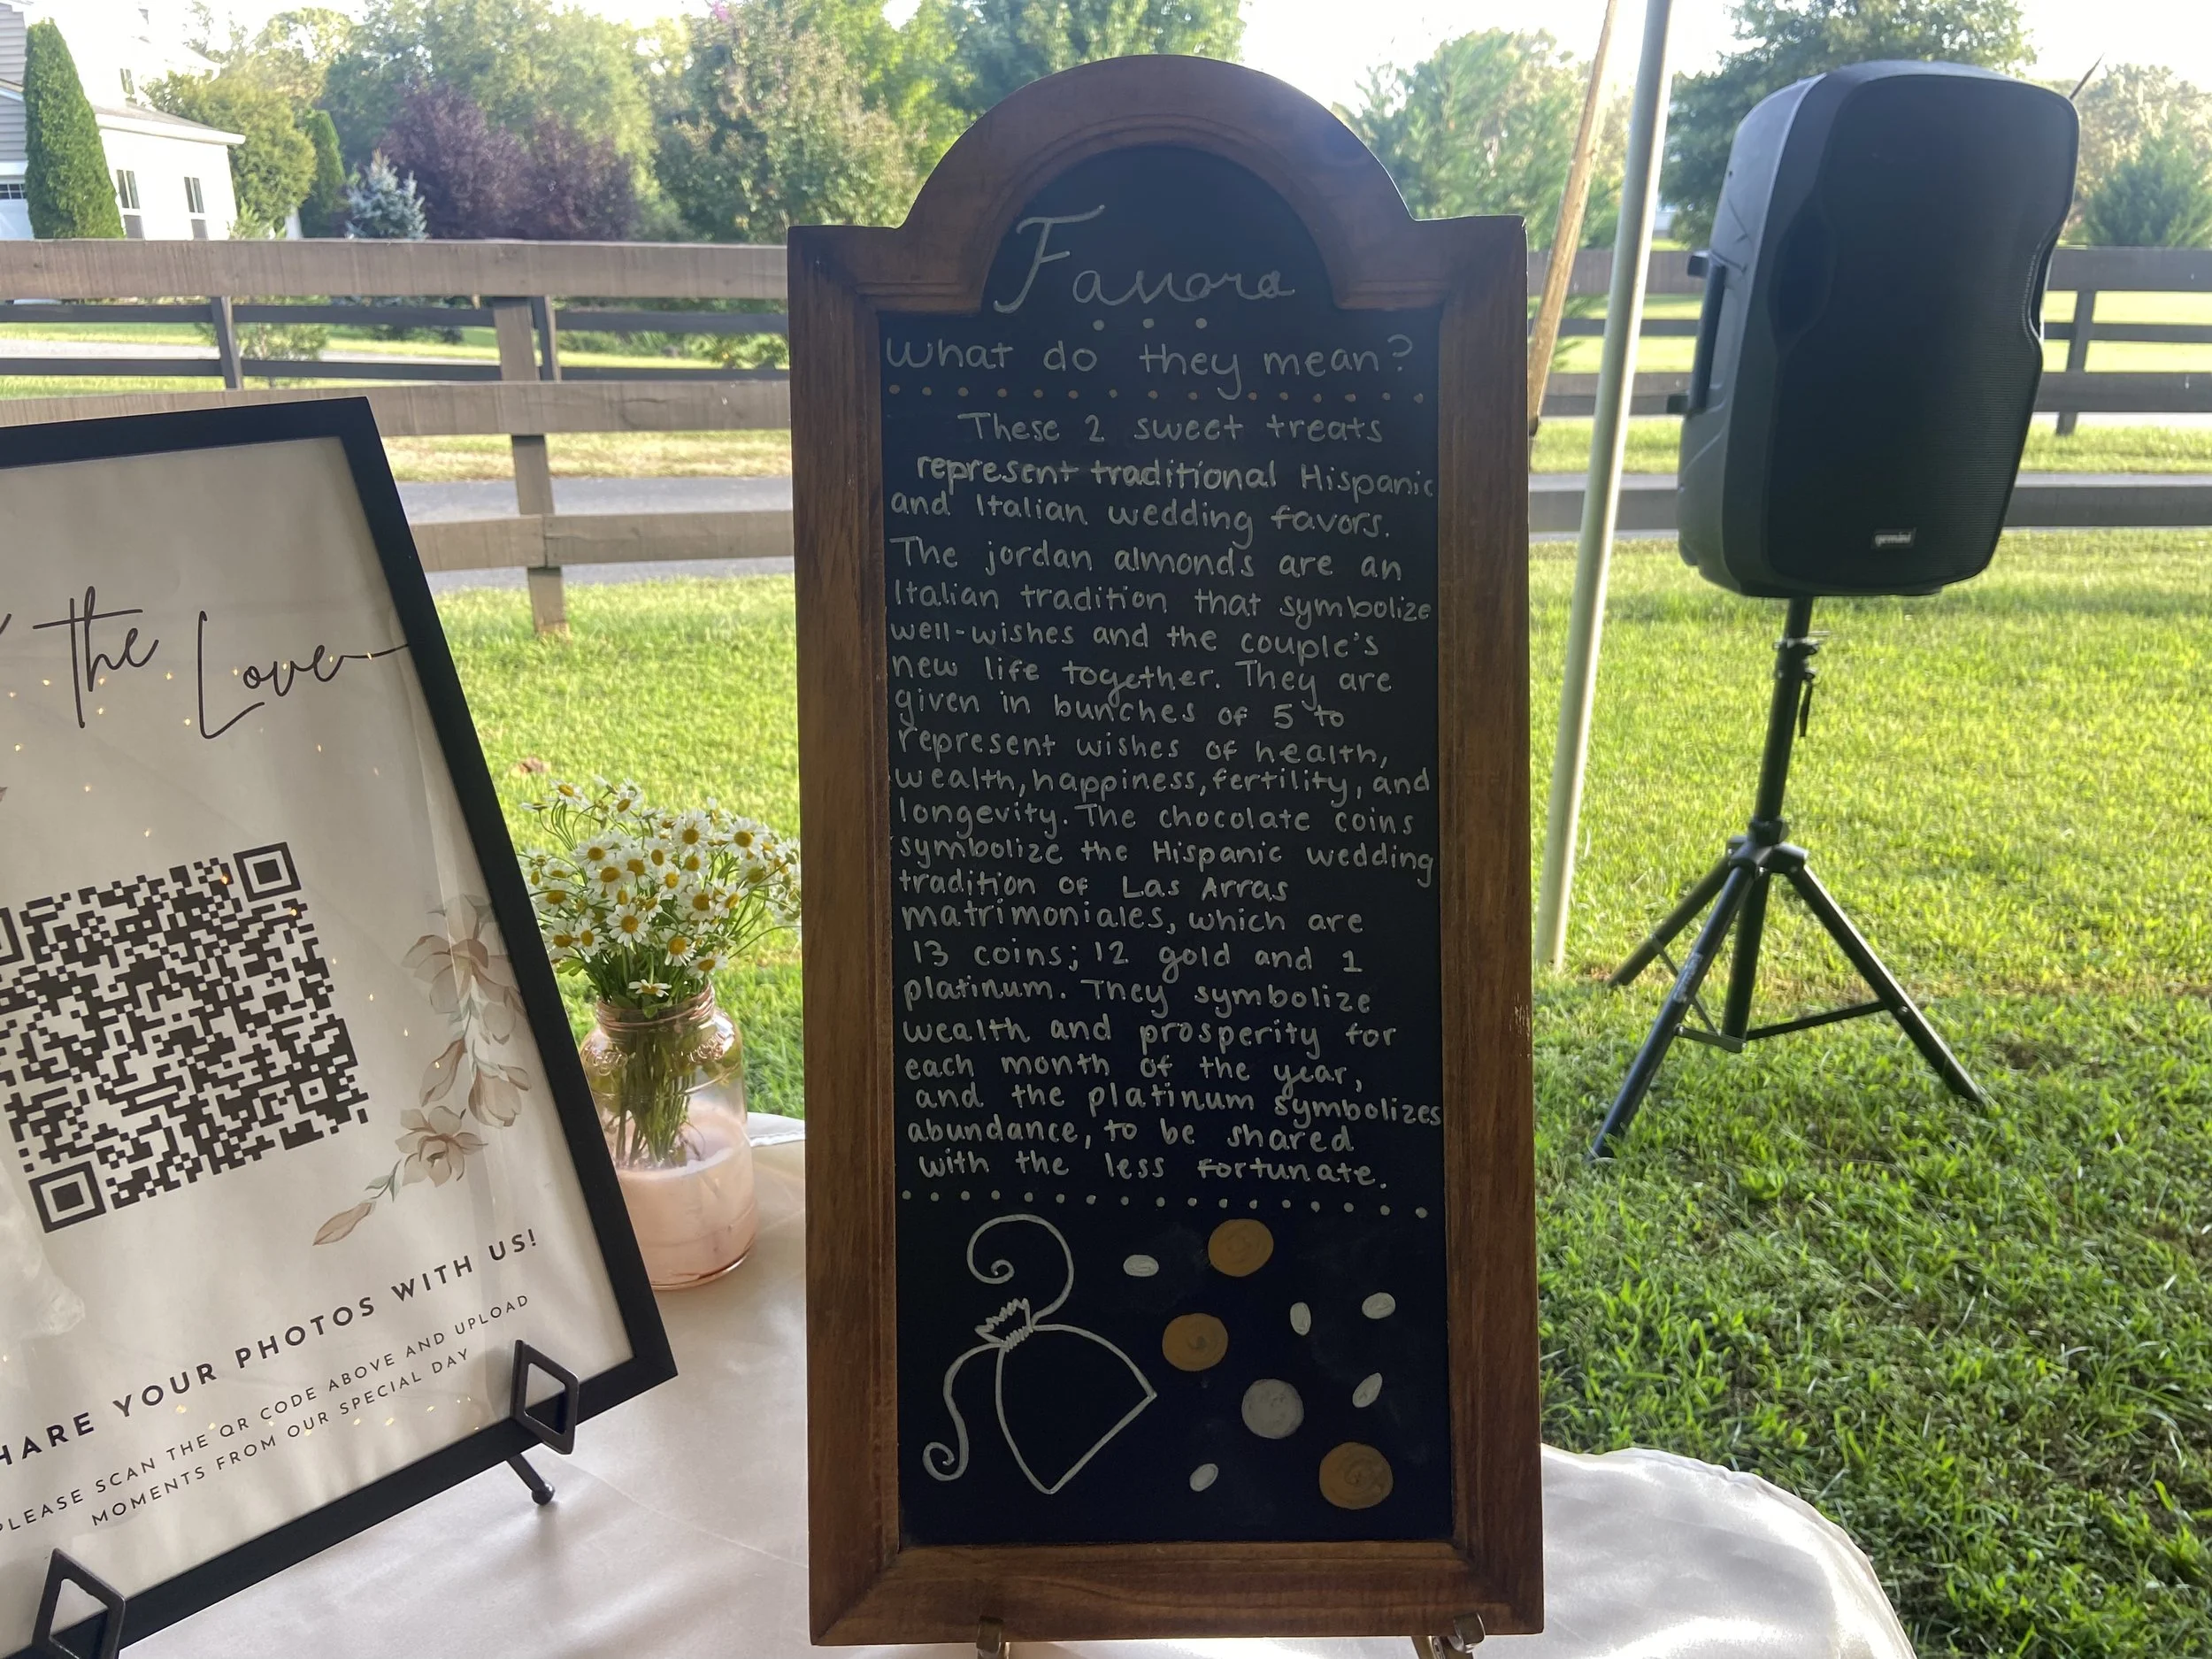 the Love
SHARE YOUR PHOTOS WITH US!
PLEASE SCAN THE QR CODE ABOVE AND UPLOAD
MOMENTS FROM OUR SPECIAL DAY
Favors
What do they mean?
These 2 sweet treats
represent traditional Hispanic
and Italian wedding favors.
The jordan almonds are an
Italian tradition that symbolize
well-wishes and the couple's
new life together. They are
given in bunches of 5 to
represent wishes of health,
wealth, happiness, fertility, and
longevity. The chocolate coins
symbolize the Hispanic wedding
tradition of Las Arras
matrimoniales, which are
13 coins; 12 gold and 1
platinum. They symbolize
wealth and prosperity for
each month of the year,
and the platinum symbolizes
abundance, to be shared
with the less fortunate.
gemini